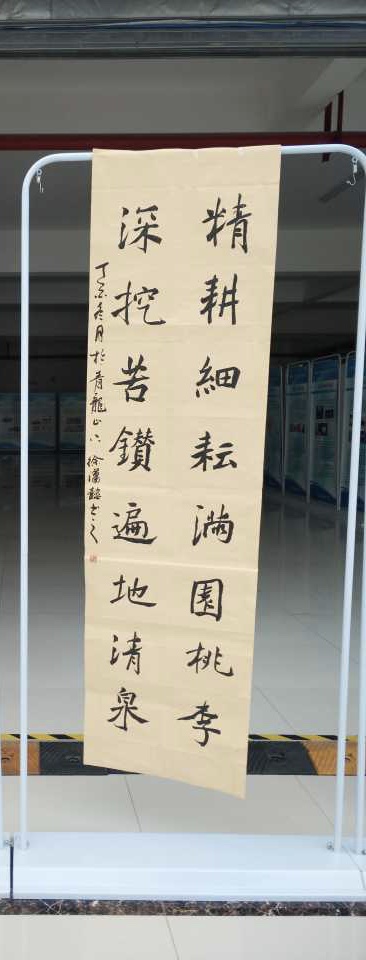 精耕細耘滿園桃李
深挖苦鑽遍地清泉
丁酉冬月於青龍山下 徐瀟懿書之